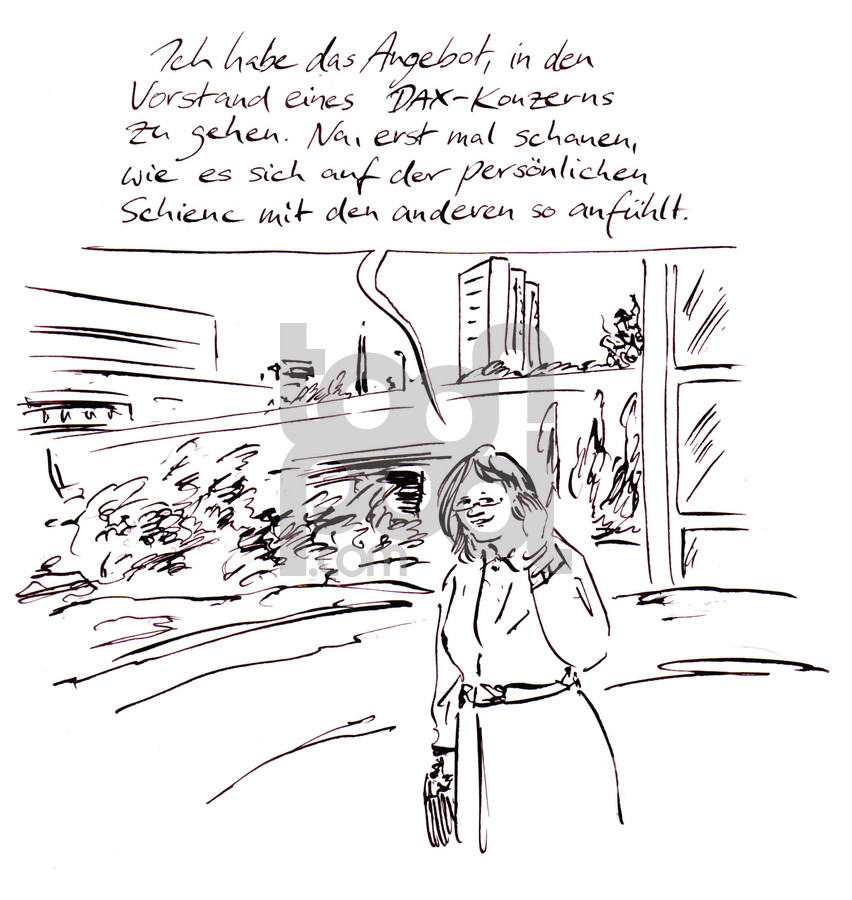 Ich habe das Angebot, in den
Vorstand eines DAX-Konzerns
zu gehen. Na, erst mal schauen,
wie es sich auf der persönlichen
Schiene mit den anderen so anfühlt.
toonpool
.com